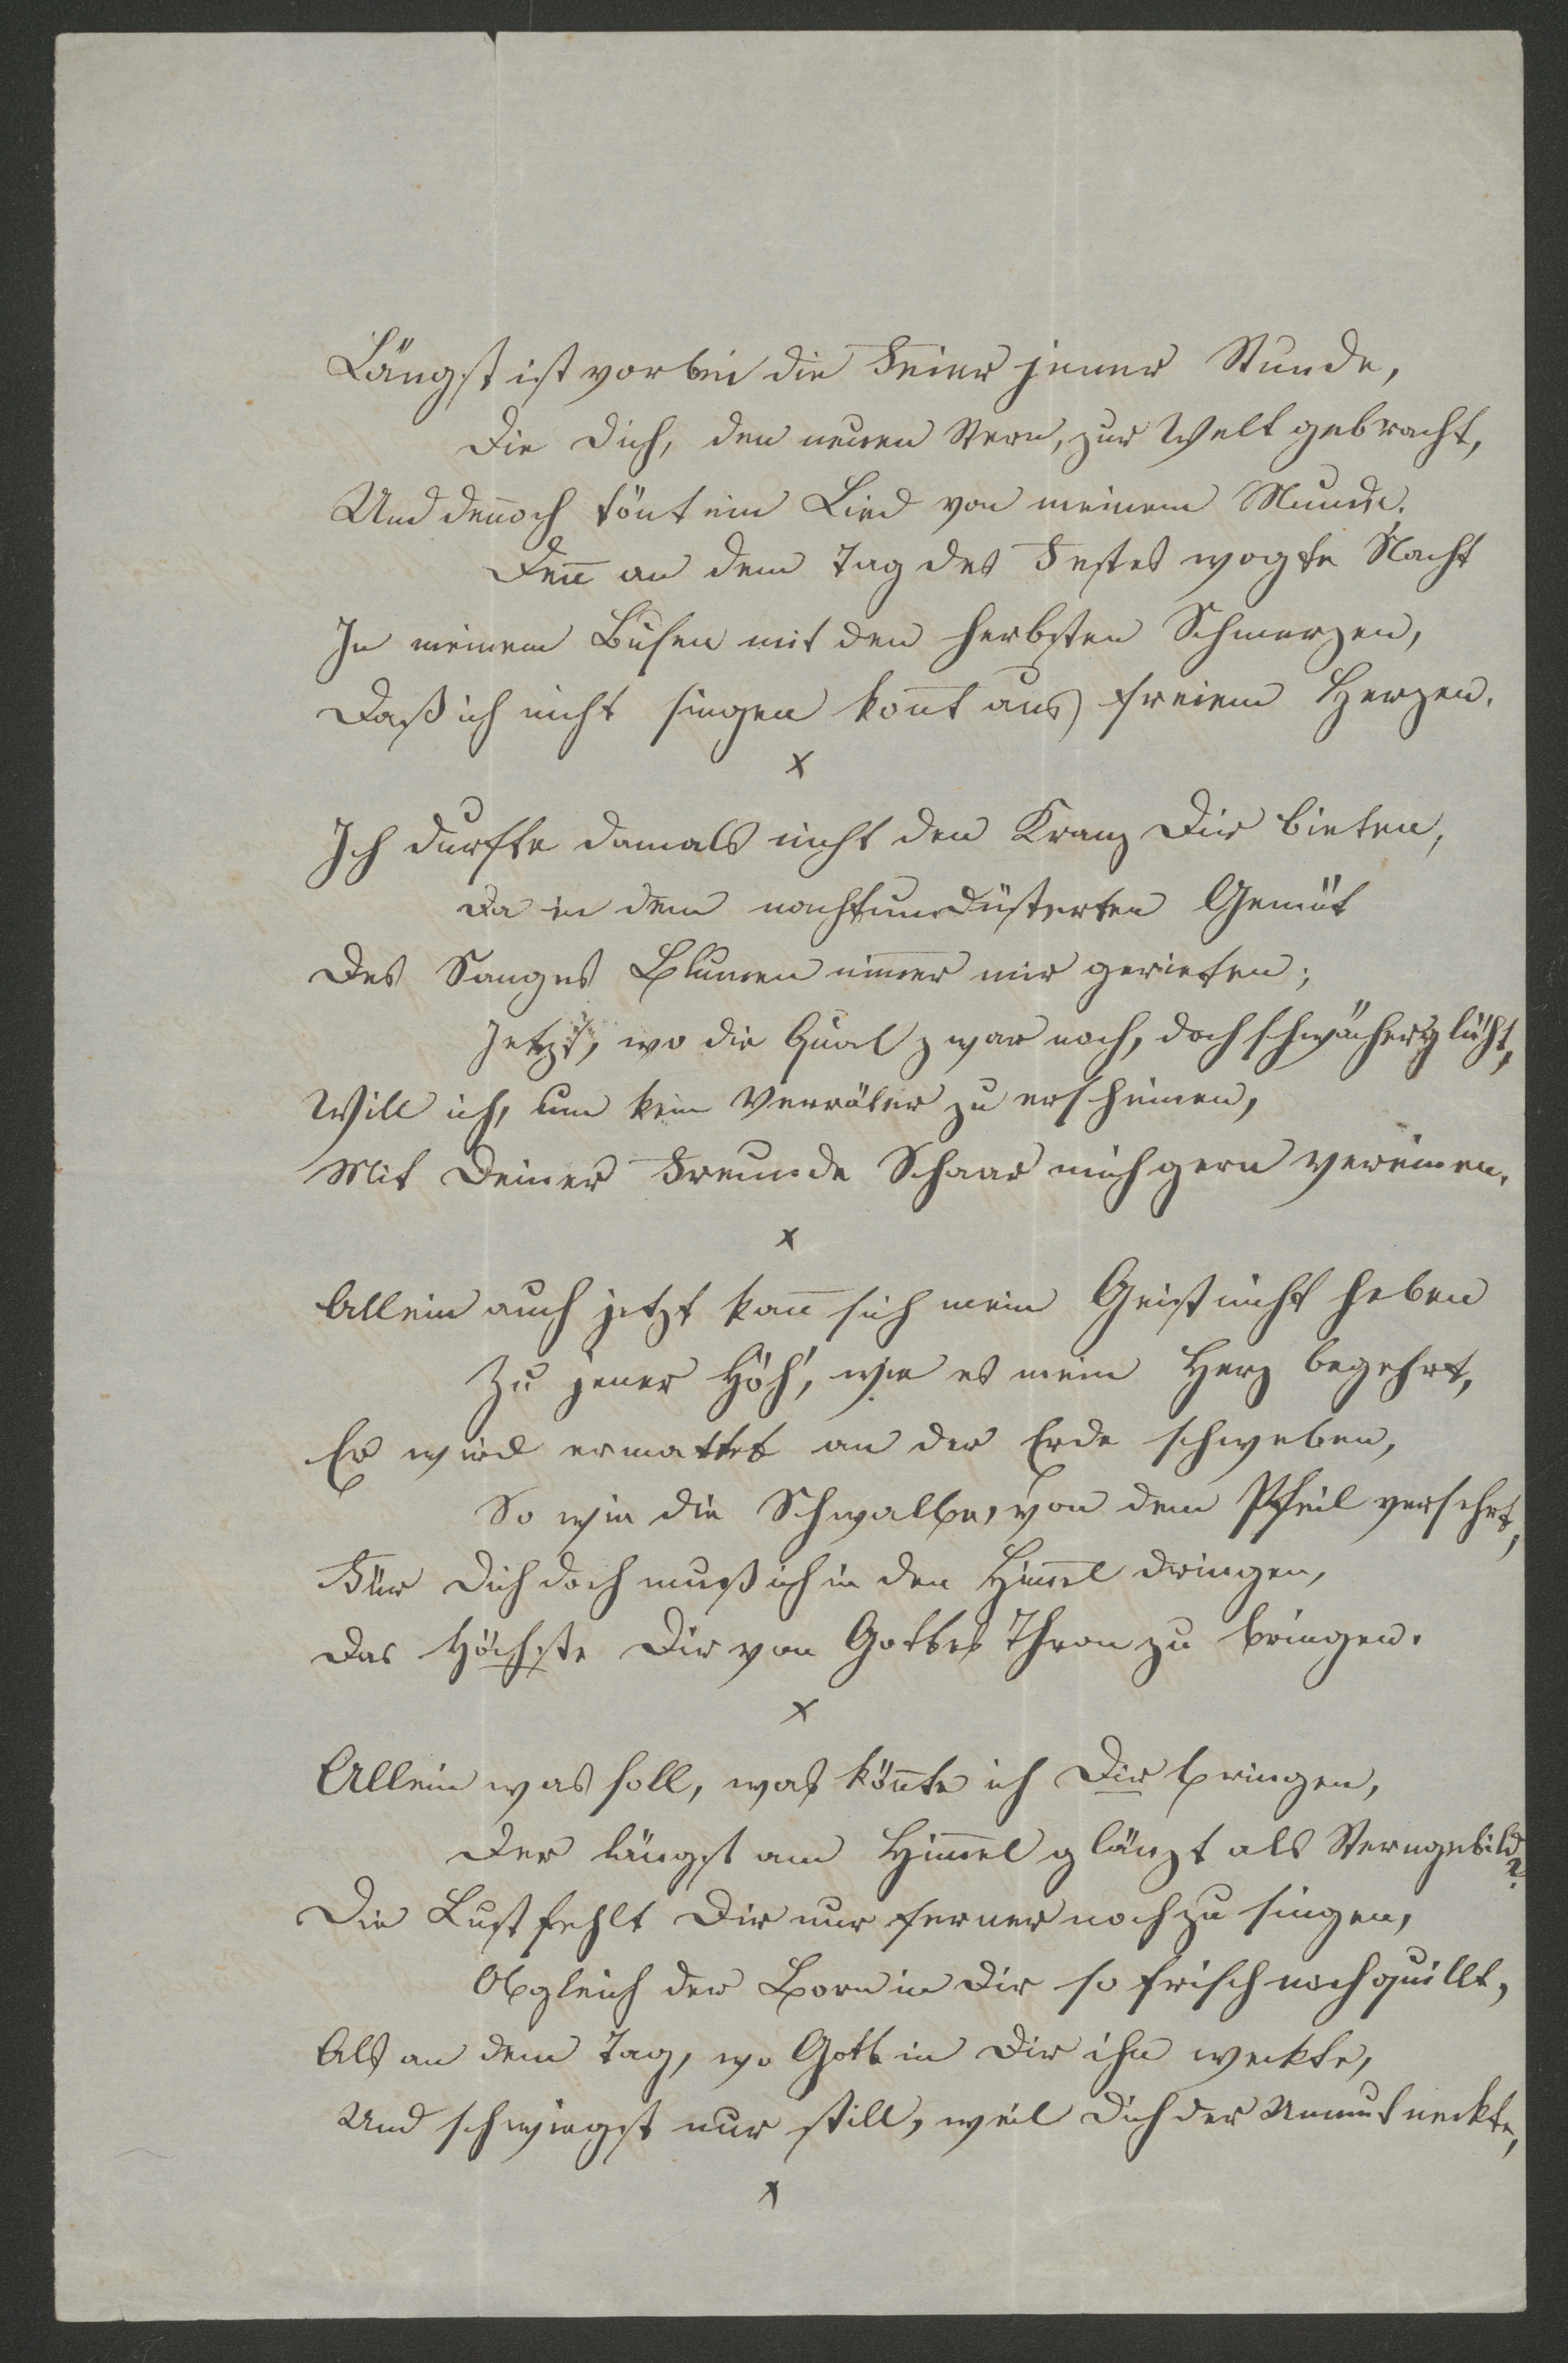 Längst ist vorbei die Feier jener Stunde,
Die Dich, den neuen Stern, zur Welt gebracht,
Und den̄och tönt ein Lied von meinem Munde.
Den̄ an dem Tag des Festes wogte Nacht
In meinem Busen mit den herbsten Schmerzen,
Daß ich nicht singen kon̄t aus freiem Herzen.
x
Ich durfte damals nicht den Kranz Dir bieten,
Da in dem nachtumdüsterten Gemüt
Des Sanges Blumen nim̄er mir gerieten;
Jetzt, wo die Qual zwar noch, doch schwächer glüht,
Will ich, um kein Verräter zu erscheinen,
Mit Deiner Freunde Schaar mich gern vereinen.
x
Allein auch jetzt kan̄ sich mein Geist nicht heben
Zu jener Höh', wie es mein Herz begehrt,
Er wird ermattet an der Erde schweben,
So wie die Schwalbe, von dem Pfeil versehrt,
Für Dich doch muß ich in den Him̄el dringen,
Das Höchste Dir von Gottes Thron zu bringen.
x
Allein was soll, was kön̄te ich Dir bringen,
Der längst am Him̄el glänzt als Sterngebild?
Die Lust fehlt Dir nur ferner noch zu singen,
Obgleich der Born in Dir so frisch noch quillt,
Als an dem Tag, wo Gott in Dir ihn weckte,
Und schwiegst nur still, weil Dich der Unmut neckte,
x